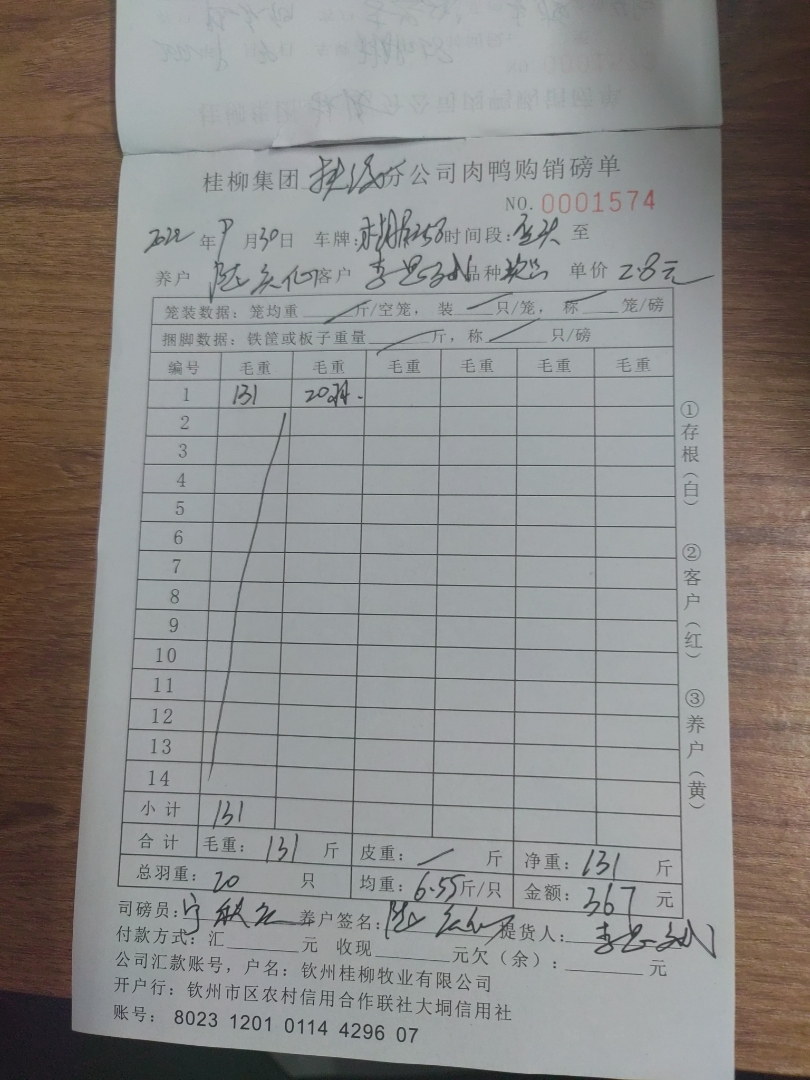 桂柳集团 分公司肉鸭购销磅单
NO. 0001574
2022 年 9 月 30 日 车牌: 253 时间段: 至
养户 陆 客户 李 品种 单价 2.8元
笼装数据: 笼均重 斤/空笼, 装 只/笼, 称 笼/磅
捆脚数据: 铁筐或板子重量 斤, 称 只/磅
编号 毛重 毛重 毛重 毛重 毛重 毛重
1 131 20羽.
2
3
4
5
6
7
8
9
10
11
12
13
14
小计 131
合计 毛重: 131 斤 皮重: 斤 净重: 131 斤
总羽重: 20 只 均重: 6.55斤/只 金额: 367 元
司磅员: 宁 养户签名: 陆 提货人: 李
付款方式: 汇 元 收现 元欠(余): 元
公司汇款账号, 户名: 钦州桂柳牧业有限公司
开户行: 钦州市区农村信用合作联社大垌信用社
账号: 8023 1201 0114 4296 07
①存根(白) ②客户(红) ③养户(黄)